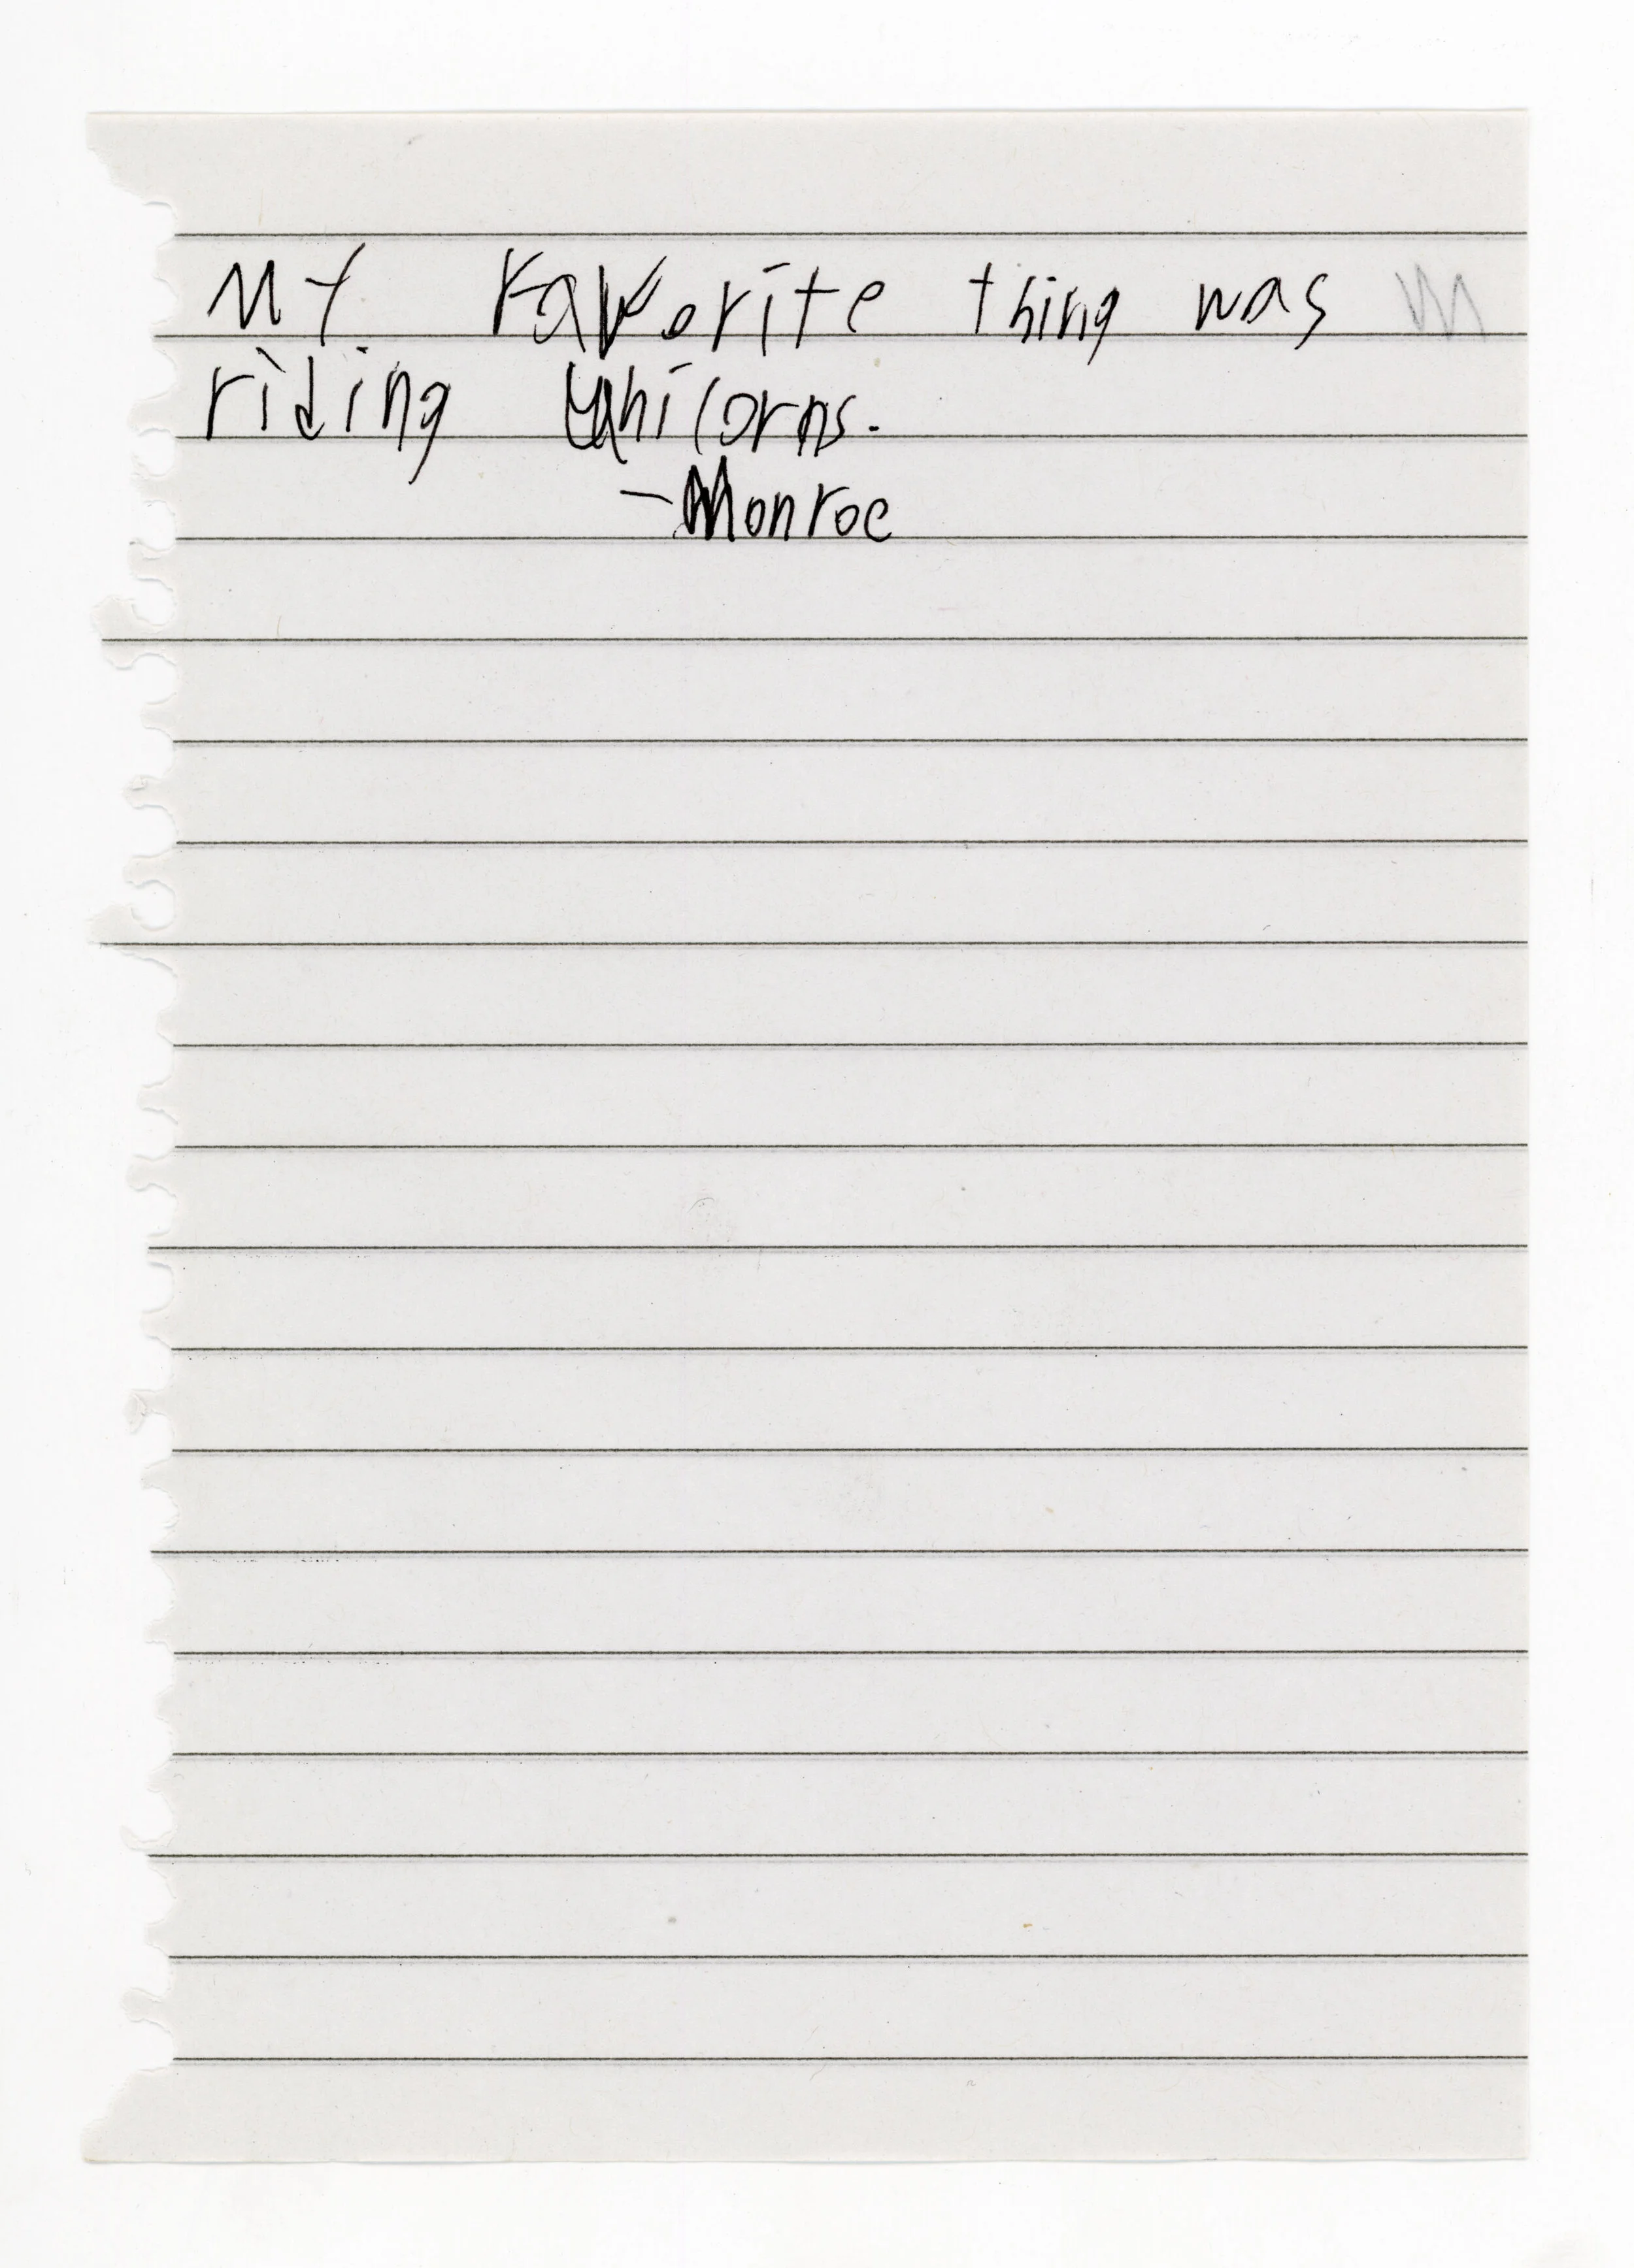 My favorite thing was
riding unicorns.
-Monroe